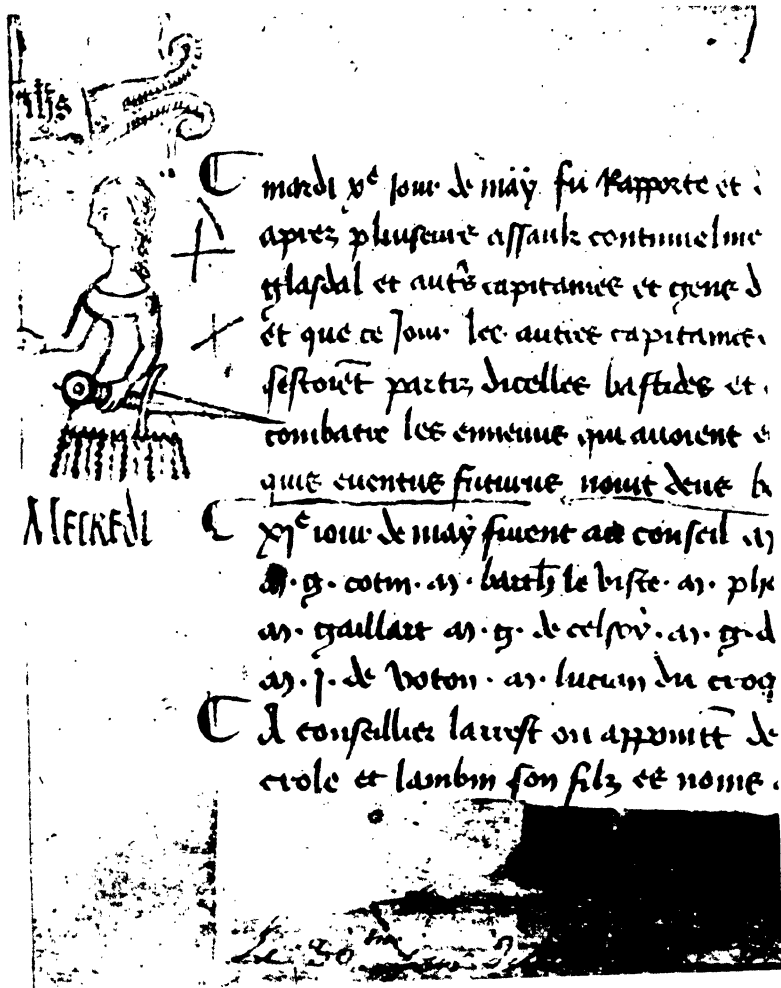 IHS
mardi xe jour de may fu Rapporte et
aprez pluseurs assaulz continuelme
glasdal et autrs capitaines et gens d
Et que ce Jour les autres capitaines
sestoiēt partiz dicelles bastides et
combatre les ennemis qui auoient e
quis euentus futurus nouit deus b
Mercredi
xje jour de may furent au conseil m
m. g. cotin. m. barth le viste. m. phe
m. gaillart m. g. de celsoy. m. g. d
m. J. de voton. m. lucian du croq
A conseillier larrest ou appoinctt de
crole et lambin son filz es noms